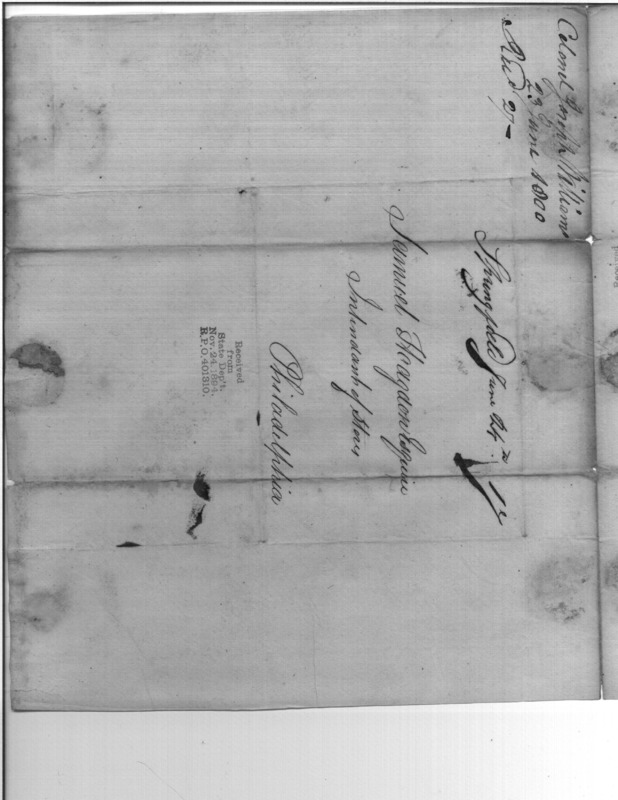 Colonel Joseph Williams
23 June 1800
Rec.d 27 –
Springfield June 24th
Samuel Hodgdon Esquire
Intendant of Stores
Philadelphia
Received
from
State Dep't.
Nov. 24, 1894.
R.P.O. 401310.